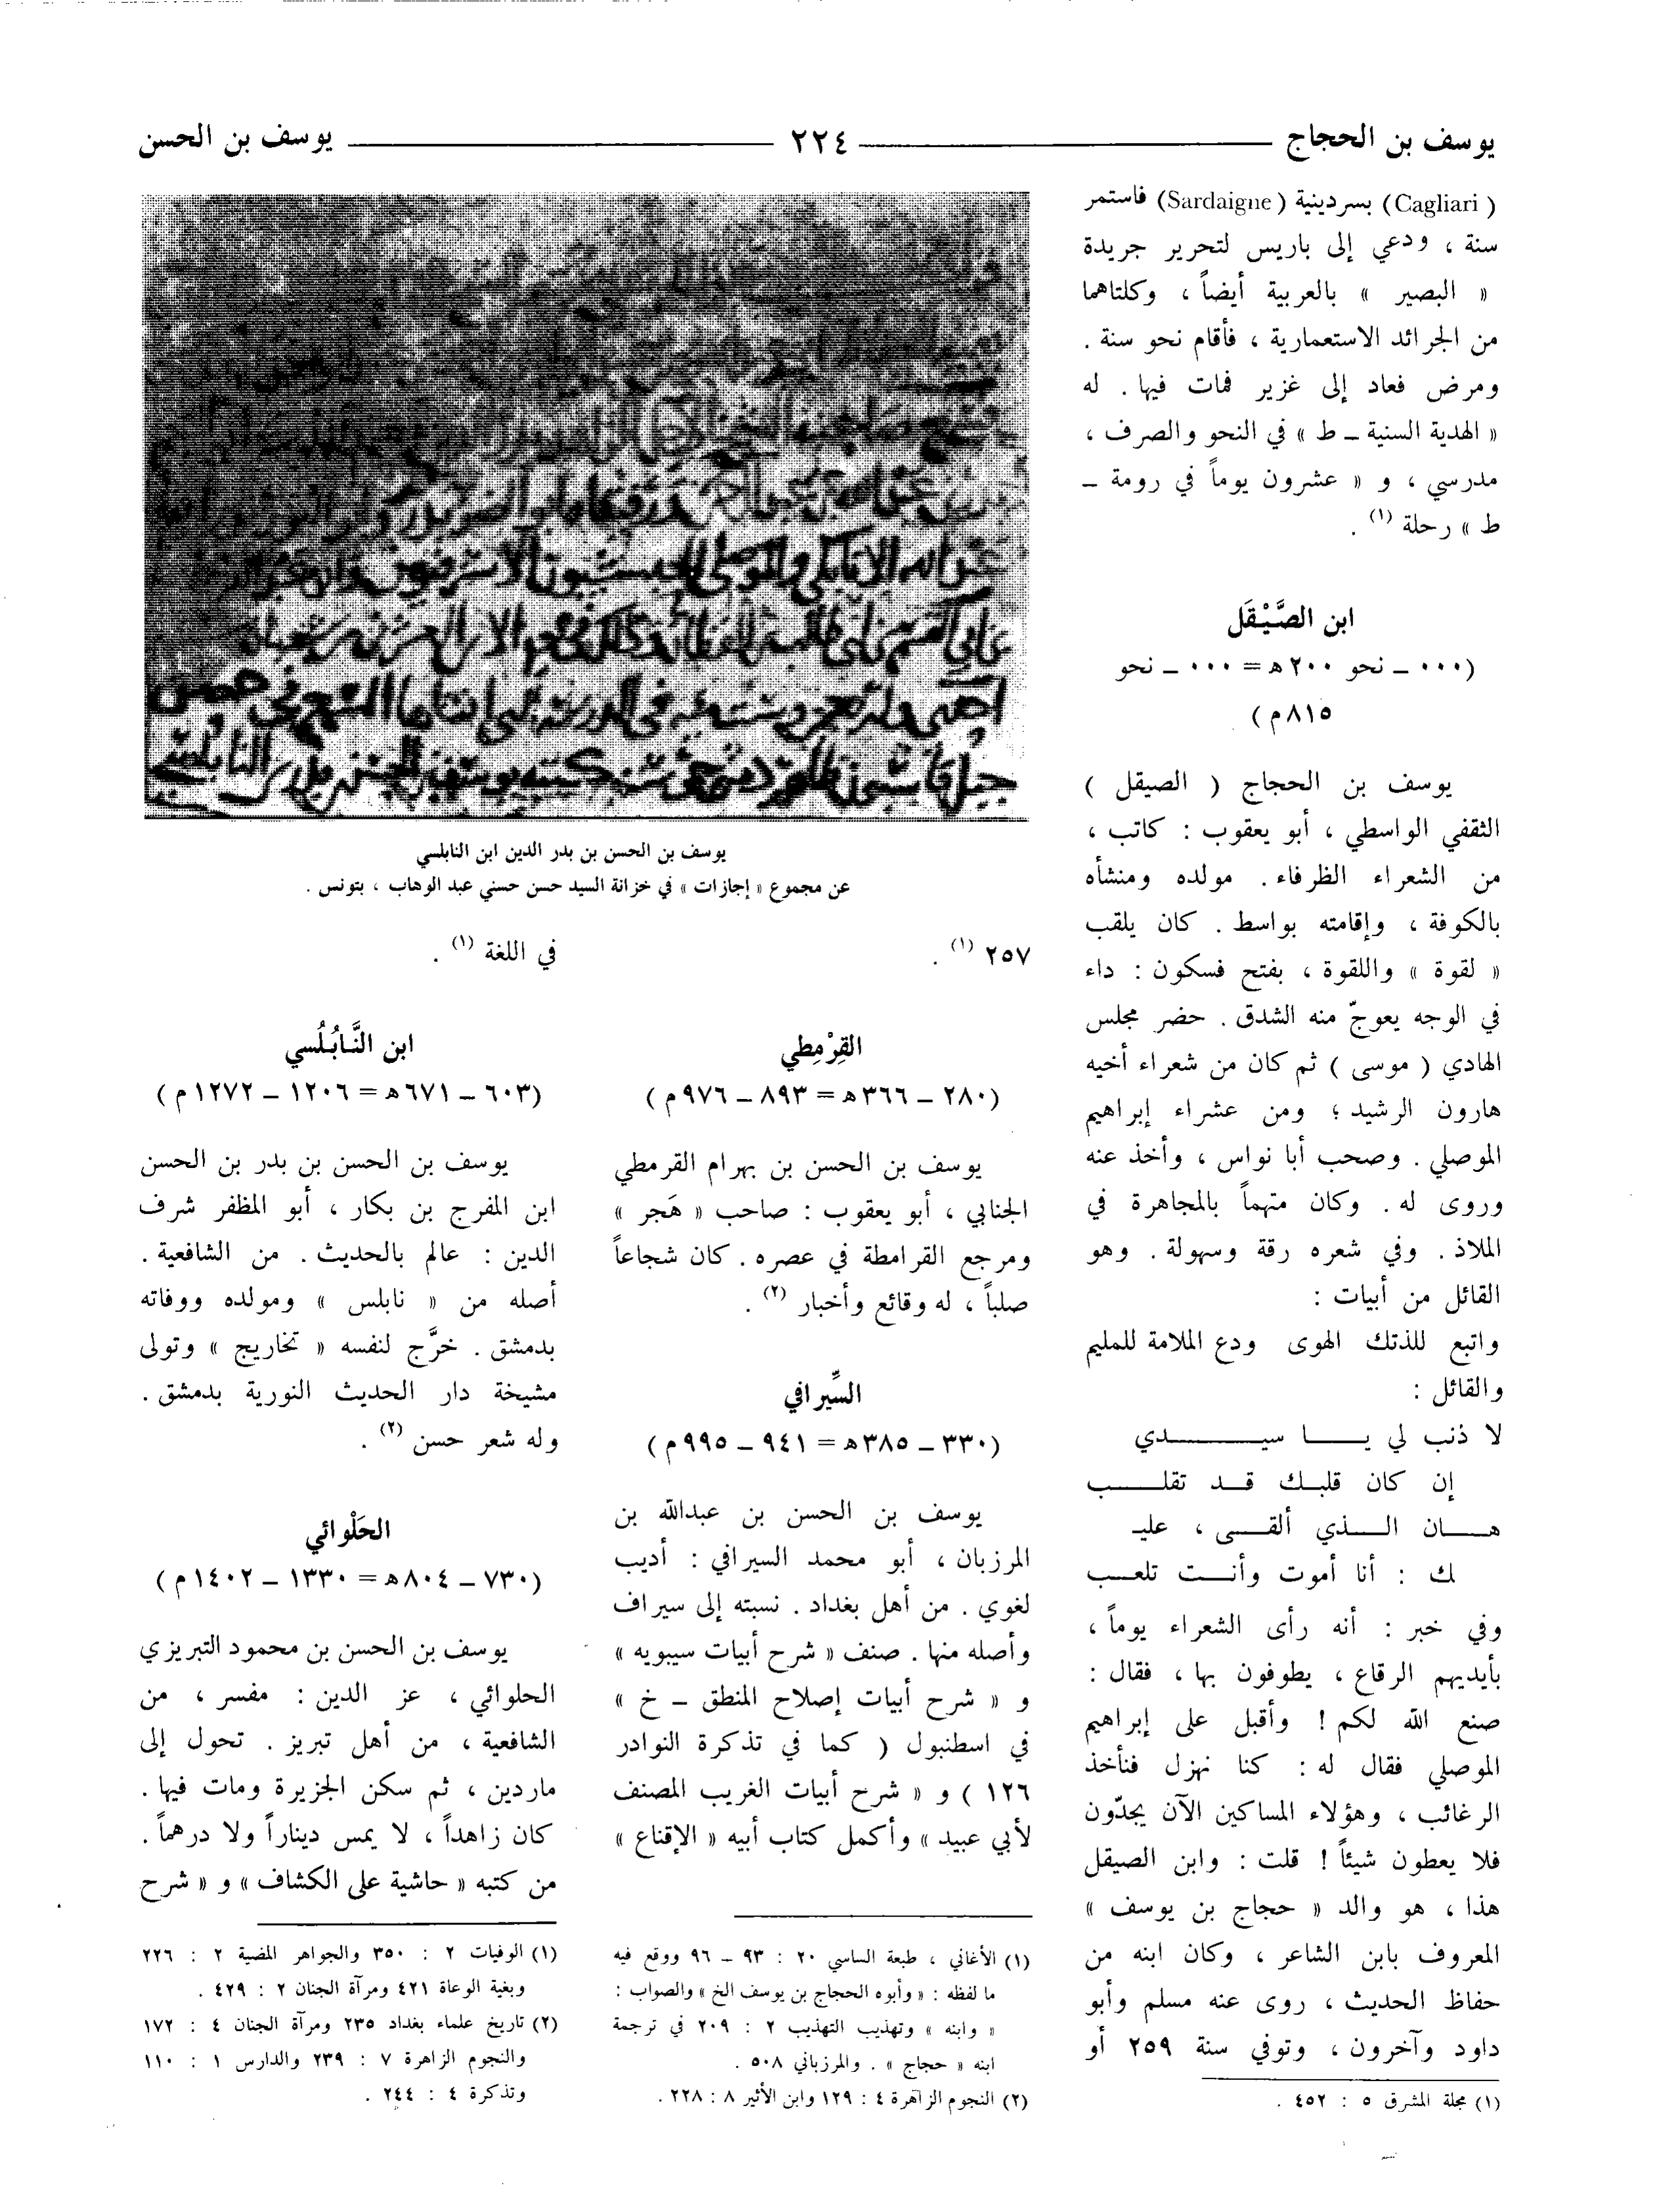 يوسف بن الحجاج ٢٢٤ يوسف بن الحسن
( Cagliari) بسردينية ( Sardaigne) فاستمر
سنة ، ودعي إلى باريس لتحرير جريدة
« البصير » بالعربية أيضاً ، وكلتاهما
من الجرائد الاستعمارية ، فأقام نحو سنة .
ومرض فعاد إلى غزير فمات فيها . له
« الهدية السنية ــ ط » في النحو والصرف ،
مدرسي ، و « عشرون يوماً في رومة ــ
ط » رحلة (١) .
ابن الصَّيْقَل
(٠٠٠ ــ نحو ٢٠٠ هـ = ٠٠٠ ــ نحو
٨١٥م )
يوسف بن الحجاج ( الصيقل )
الثقفي الواسطي ، أبو يعقوب : كاتب ،
من الشعراء الظرفاء . مولده ومنشأه
بالكوفة ، وإقامته بواسط . كان يلقب
« لقوة » واللقوة ، بفتح فسكون : داء
في الوجه يعوجّ منه الشدق . حضر مجلس
الهادي ( موسى ) ثم كان من شعراء أخيه
هارون الرشيد ؛ ومن عشراء إبراهيم
الموصلي . وصحب أبا نواس ، وأخذ عنه
وروى له . وكان متهماً بالمجاهرة في
الملاذ . وفي شعره رقة وسهولة . وهو
القائل من أبيات :
واتبع للذتك الهوى ودع الملامة للمليم
والقائل :
لا ذنب لي يـــا سيــــدي
إن كان قلبـك قـد تقلــب
هــان الــذي ألقــى ، عليـ
ك : أنا أموت وأنــت تلعــب
وفي خبر : أنه رأى الشعراء يوماً ،
بأيديهم الرقاع ، يطوفون بها ، فقال :
صنع الله لكم ! وأقبل على إبراهيم
الموصلي فقال له : كنا نهزل فنأخذ
الرغائب ، وهؤلاء المساكين الآن يجدّون
فلا يعطون شيئاً ! قلت : وابن الصيقل
هذا ، هو والد « حجاج بن يوسف »
المعروف بابن الشاعر ، وكان ابنه من
حفاظ الحديث ، روى عنه مسلم وأبو
داود وآخرون ، وتوفي سنة ٢٥٩ أو
(١) مجلة المشرق ٥ : ٤٥٢ .
يوسف بن الحسن بن بدر الدين ابن النابلسي
عن مجموع « إجازات » في خزانة السيد حسن حسني عبد الوهاب ، بتونس .
٢٥٧ (١) .
القِرْمِطي
(٢٨٠ ــ ٣٦٦هـ = ٨٩٣ ــ ٩٧٦م )
يوسف بن الحسن بن بهرام القرمطي
الجنابي ، أبو يعقوب : صاحب « هَجر »
ومرجع القرامطة في عصره . كان شجاعاً
صلباً ، له وقائع وأخبار (٢) .
السِّيرافي
(٣٣٠ ــ ٣٨٥هـ = ٩٤١ ــ ٩٩٥م )
يوسف بن الحسن بن عبدالله بن
المرزبان ، أبو محمد السيرافي : أديب
لغوي . من أهل بغداد . نسبته إلى سيراف
وأصله منها . صنف « شرح أبيات سيبويه »
و « شرح أبيات إصلاح المنطق ــ خ »
في اسطنبول ( كما في تذكرة النوادر
١٢٦ ) و « شرح أبيات الغريب المصنف
لأبي عبيد » وأكمل كتاب أبيه « الإقناع »
(١) الأغاني ، طبعة الساسي ٢٠ : ٩٣ ــ ٩٦ ووقع فيه
ما لفظه : « وأبوه الحجاج بن يوسف الخ » والصواب :
« وابنه » وتهذيب التهذيب ٢ : ٢٠٩ في ترجمة
ابنه « حجاج » . والمرزباني ٥٠٨ .
(٢) النجوم الزاهرة ٤ : ١٢٩ وابن الأثير ٨ : ٢٢٨ .
في اللغة (١) .
ابن النَّابُلُسي
(٦٠٣ ــ ٦٧١هـ = ١٢٠٦ ــ ١٢٧٢م )
يوسف بن الحسن بن بدر بن الحسن
ابن المفرج بن بكار ، أبو المظفر شرف
الدين : عالم بالحديث . من الشافعية .
أصله من « نابلس » ومولده ووفاته
بدمشق . خرَّج لنفسه « تخاريج » وتولى
مشيخة دار الحديث النورية بدمشق .
وله شعر حسن (٢) .
الحَلْوائي
(٧٣٠ ــ ٨٠٤هـ = ١٣٣٠ ــ ١٤٠٢م )
يوسف بن الحسن بن محمود التبريزي
الحلوائي ، عز الدين : مفسر ، من
الشافعية ، من أهل تبريز . تحول إلى
ماردين ، ثم سكن الجزيرة ومات فيها .
كان زاهداً ، لا يمس ديناراً ولا درهماً .
من كتبه « حاشية على الكشاف » و « شرح
(١) الوفيات ٢ : ٣٥٠ والجواهر المضية ٢ : ٢٢٦
وبغية الوعاة ٤٢١ ومرآة الجنان ٢ : ٤٢٩ .
(٢) تاريخ علماء بغداد ٢٣٥ ومرآة الجنان ٤ : ١٧٢
والنجوم الزاهرة ٧ : ٢٣٩ والدارس ١ : ١١٠
وتذكرة ٤ : ٢٤٤ .